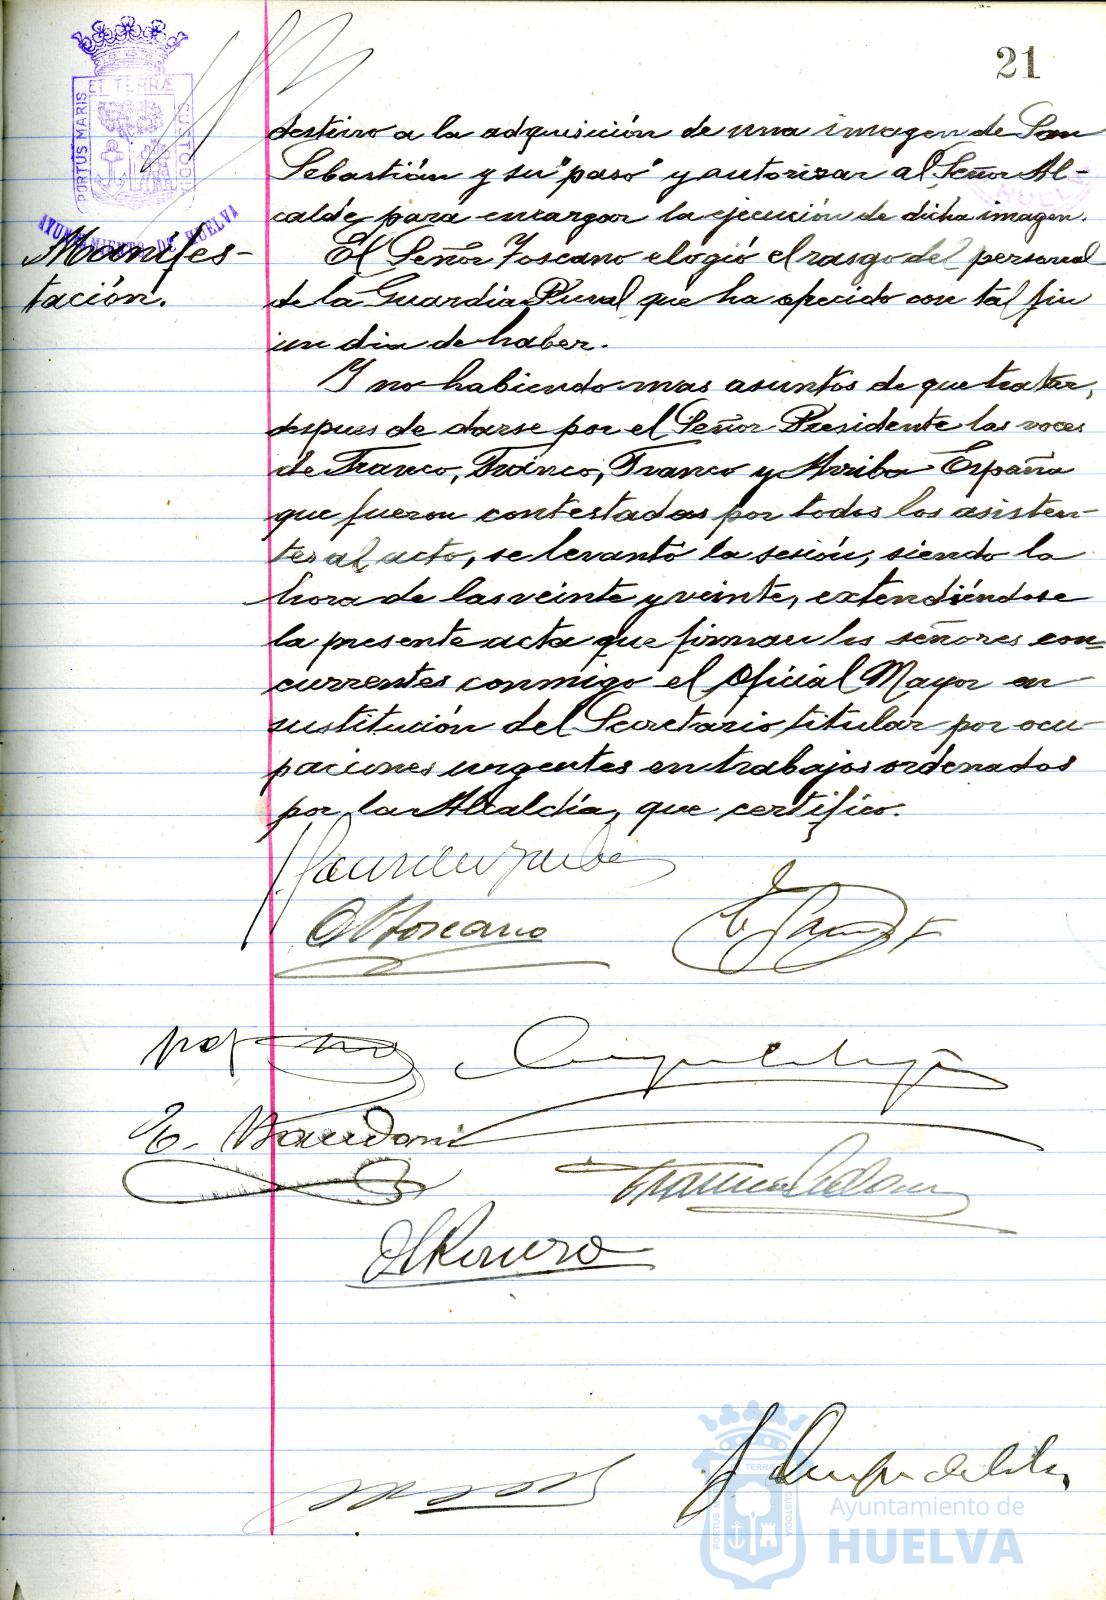 21
ET TERRÆ
PORTUS MARIS
CUSTODIA
AYUNTAMIENTO DE HUELVA
HUELVA
Manifes-
tación.
desteiro a la adquisición de una imagen de San
Sebastián y su "paso" y autorizar al Señor Al-
calde para encargar la ejecución de dicha imagen.
El Señor Toscano elogió el rasgo del personal
de la Guardia Rural que ha ofrecido con tal fin
un dia de haber.
Y no habiendo mas asuntos de que tratar,
despues de darse por el Señor Presidente las voces
de Franco, Franco, Franco y Arriba España
que fueron contestadas por todos los asisten-
tes al acto, se levantó la sesión, siendo la
hora de las veinte y veinte, extendiéndose
la presente acta que firman los señores con-
currentes conmigo el Oficial Mayor en
sustitución del Secretario titular por ocu-
paciones urgentes en trabajos ordenados
por la Alcaldía, que certifico.
Toscano
E. Baudoni
Romero
TERRÆ
PORTUS
CUSTODIA
Ayuntamiento de
HUELVA